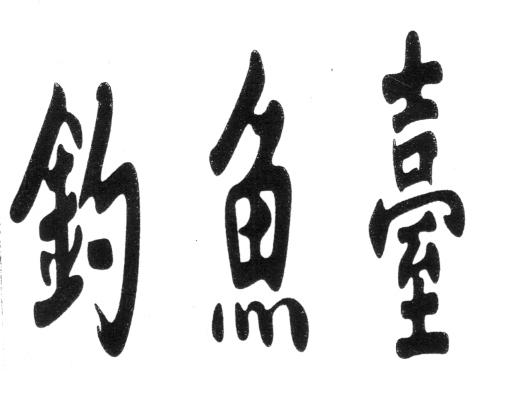 釣魚臺